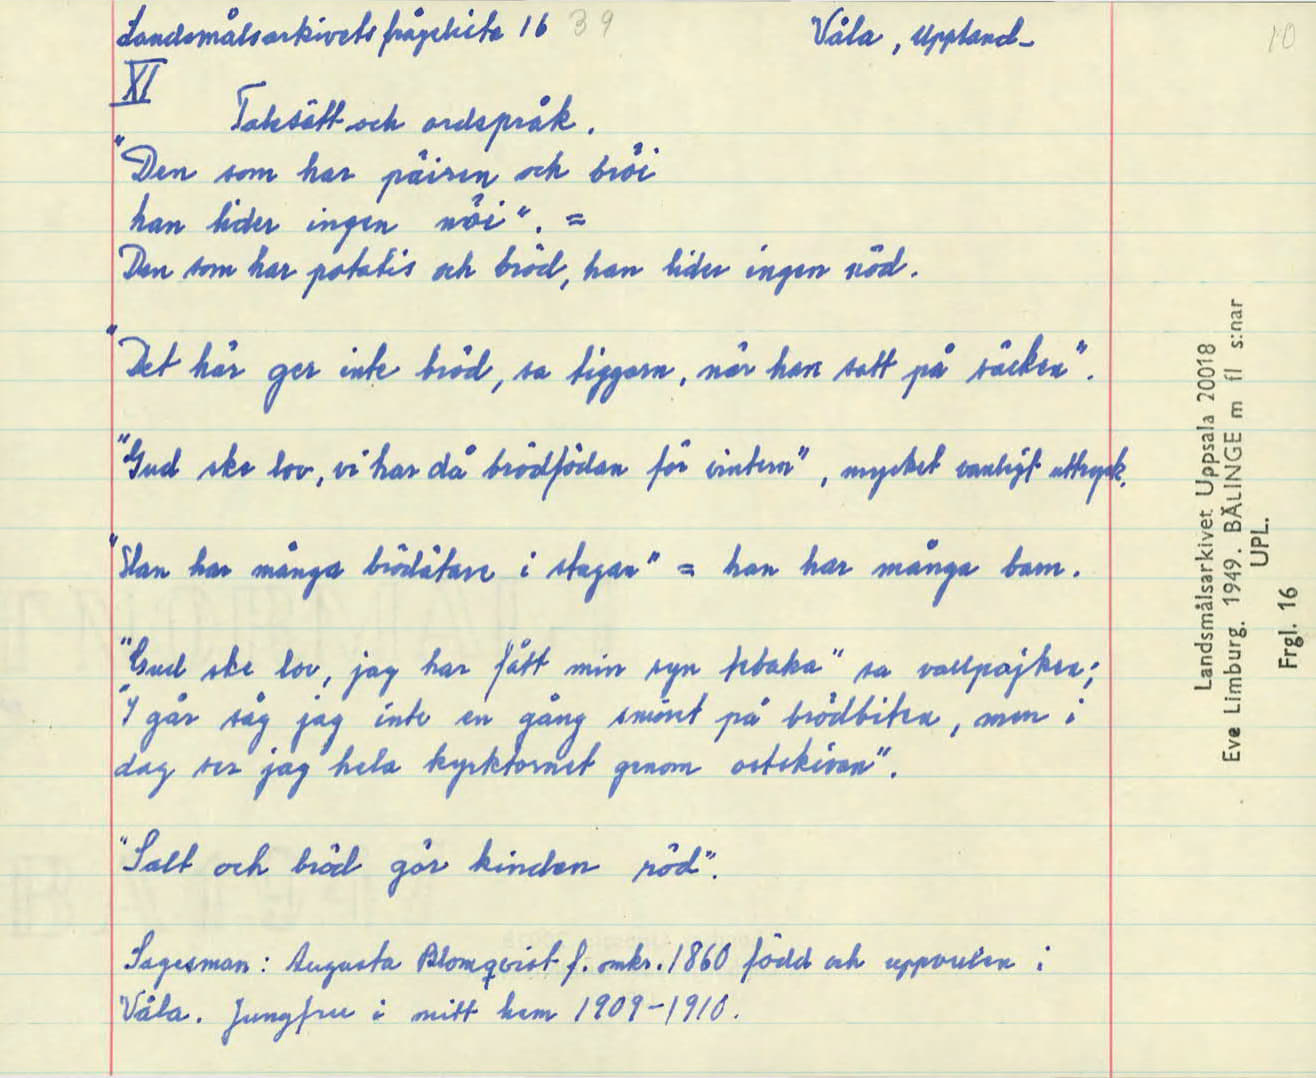 Landsmålsarkivets frågelista 16 39 Våla, Uppland_ 10
XI
Talesätt och ordspråk.
"Den som har päiren och bröi
han lider ingen nöi". =
Den som har potatis och bröd, han lider ingen nöd.
"Det här ger inte bröd, sa tiggarn, när han satt på säcken".
"Gud ske lov, vi har då brödfödan för vintern", mycket vanligt uttryck.
"Han har många brödätare i stugan" = han har många barn.
"Gud ske lov, jag har fått min syn tebaka" sa vallpojken;
"I går såg jag inte en gång smöret på brödbiten, men i
dag ser jag hela kyrktornet genom ostskivan".
"Salt och bröd gör kinden röd".
Sagesman: Augusta Blomqvist f. omkr. 1860 född och uppvuxen i
Våla. Jungfru i mitt hem 1909-1910.
Landsmålsarkivet Uppsala 20018
Eva Limburg. 1949. BÄLINGE m fl s:nar
UPL.
Frgl. 16